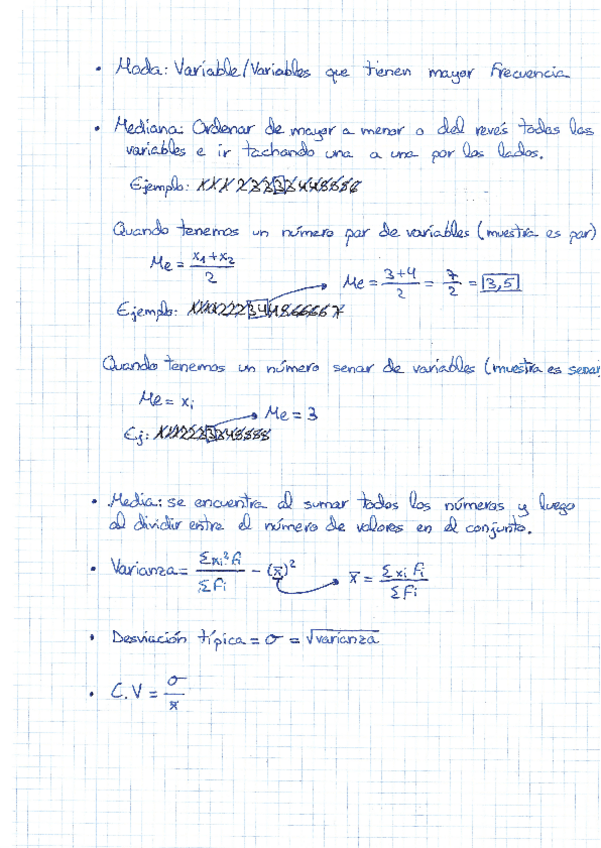 • Moda: Variable/Variables que tienen mayor frecuencia
• Mediana: Ordenar de mayor a menor o del revés todas las
variables e ir tachando una a una por los lados.
Ejemplo:
Quando tenemos un número par de variables (muestra es par)
Me = (x₁+x₂)/2
Me = (3+4)/2 = 7/2 = 3,5
Ejemplo:
Quando tenemos un número senar de variables (muestra es senar
Me = xᵢ
Me = 3
Ej:
• Media: se encuentra al sumar todos los números y luego
al dividir entre el número de valores en el conjunto.
• Varianza = Σxᵢ²fᵢ/Σfᵢ - (x̄)² x̄ = Σxᵢfᵢ/Σfᵢ
• Desviación típica = σ = √varianza
• C.V = σ/x̄